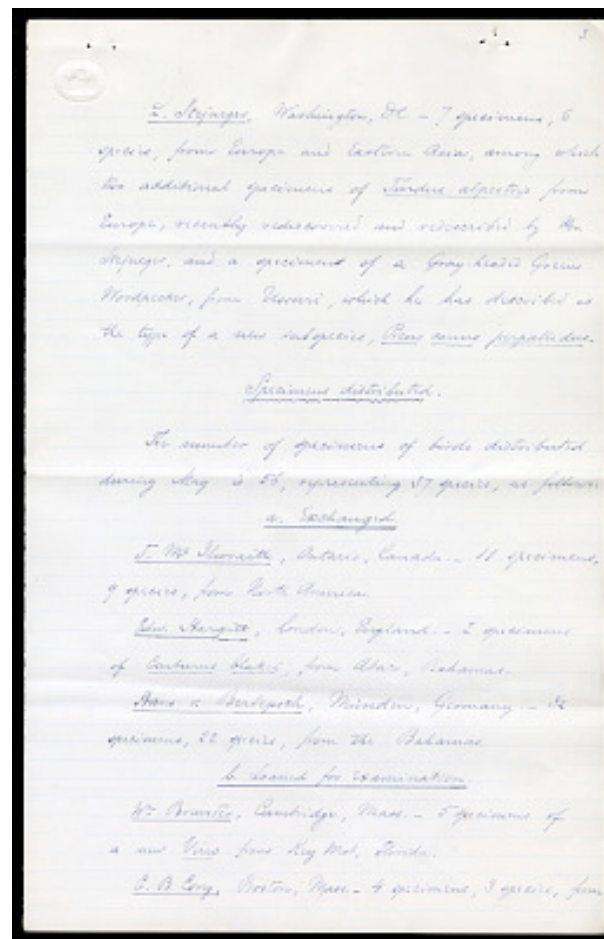 3
L. Stejneger, Washington, DC - 7 specimens, 6
species, from Europe and Eastern Asia, among which
two additional specimens of Turdus alpestris from
Europe, recently rediscovered and redescribed by Mr.
Stejneger, and a specimen of a Gray-headed Green
Woodpecker, from Ussuri, which he has described as
the type of a new subspecies, Picus canus perpallidus.
Specimens distributed.
The number of specimens of birds distributed
during May is 56, representing 37 species, as follows
a. Exchanged
T. McIlwraith, Ontario, Canada. - 11 specimens,
9 species, from North America.
Edw. Hargitt, London, England. - 2 specimens
of Centurus blakei, from Abaco, Bahamas.
Hans v. Berlepsch, Münden, Germany - 32
specimens, 22 species, from the Bahamas.
b. Loaned for examination.
Wm Brewster, Cambridge, Mass. - 5 specimens of
a new Vireo from Key West, Florida.
C. B. Cory, Boston, Mass. - 4 specimens, 3 species, from